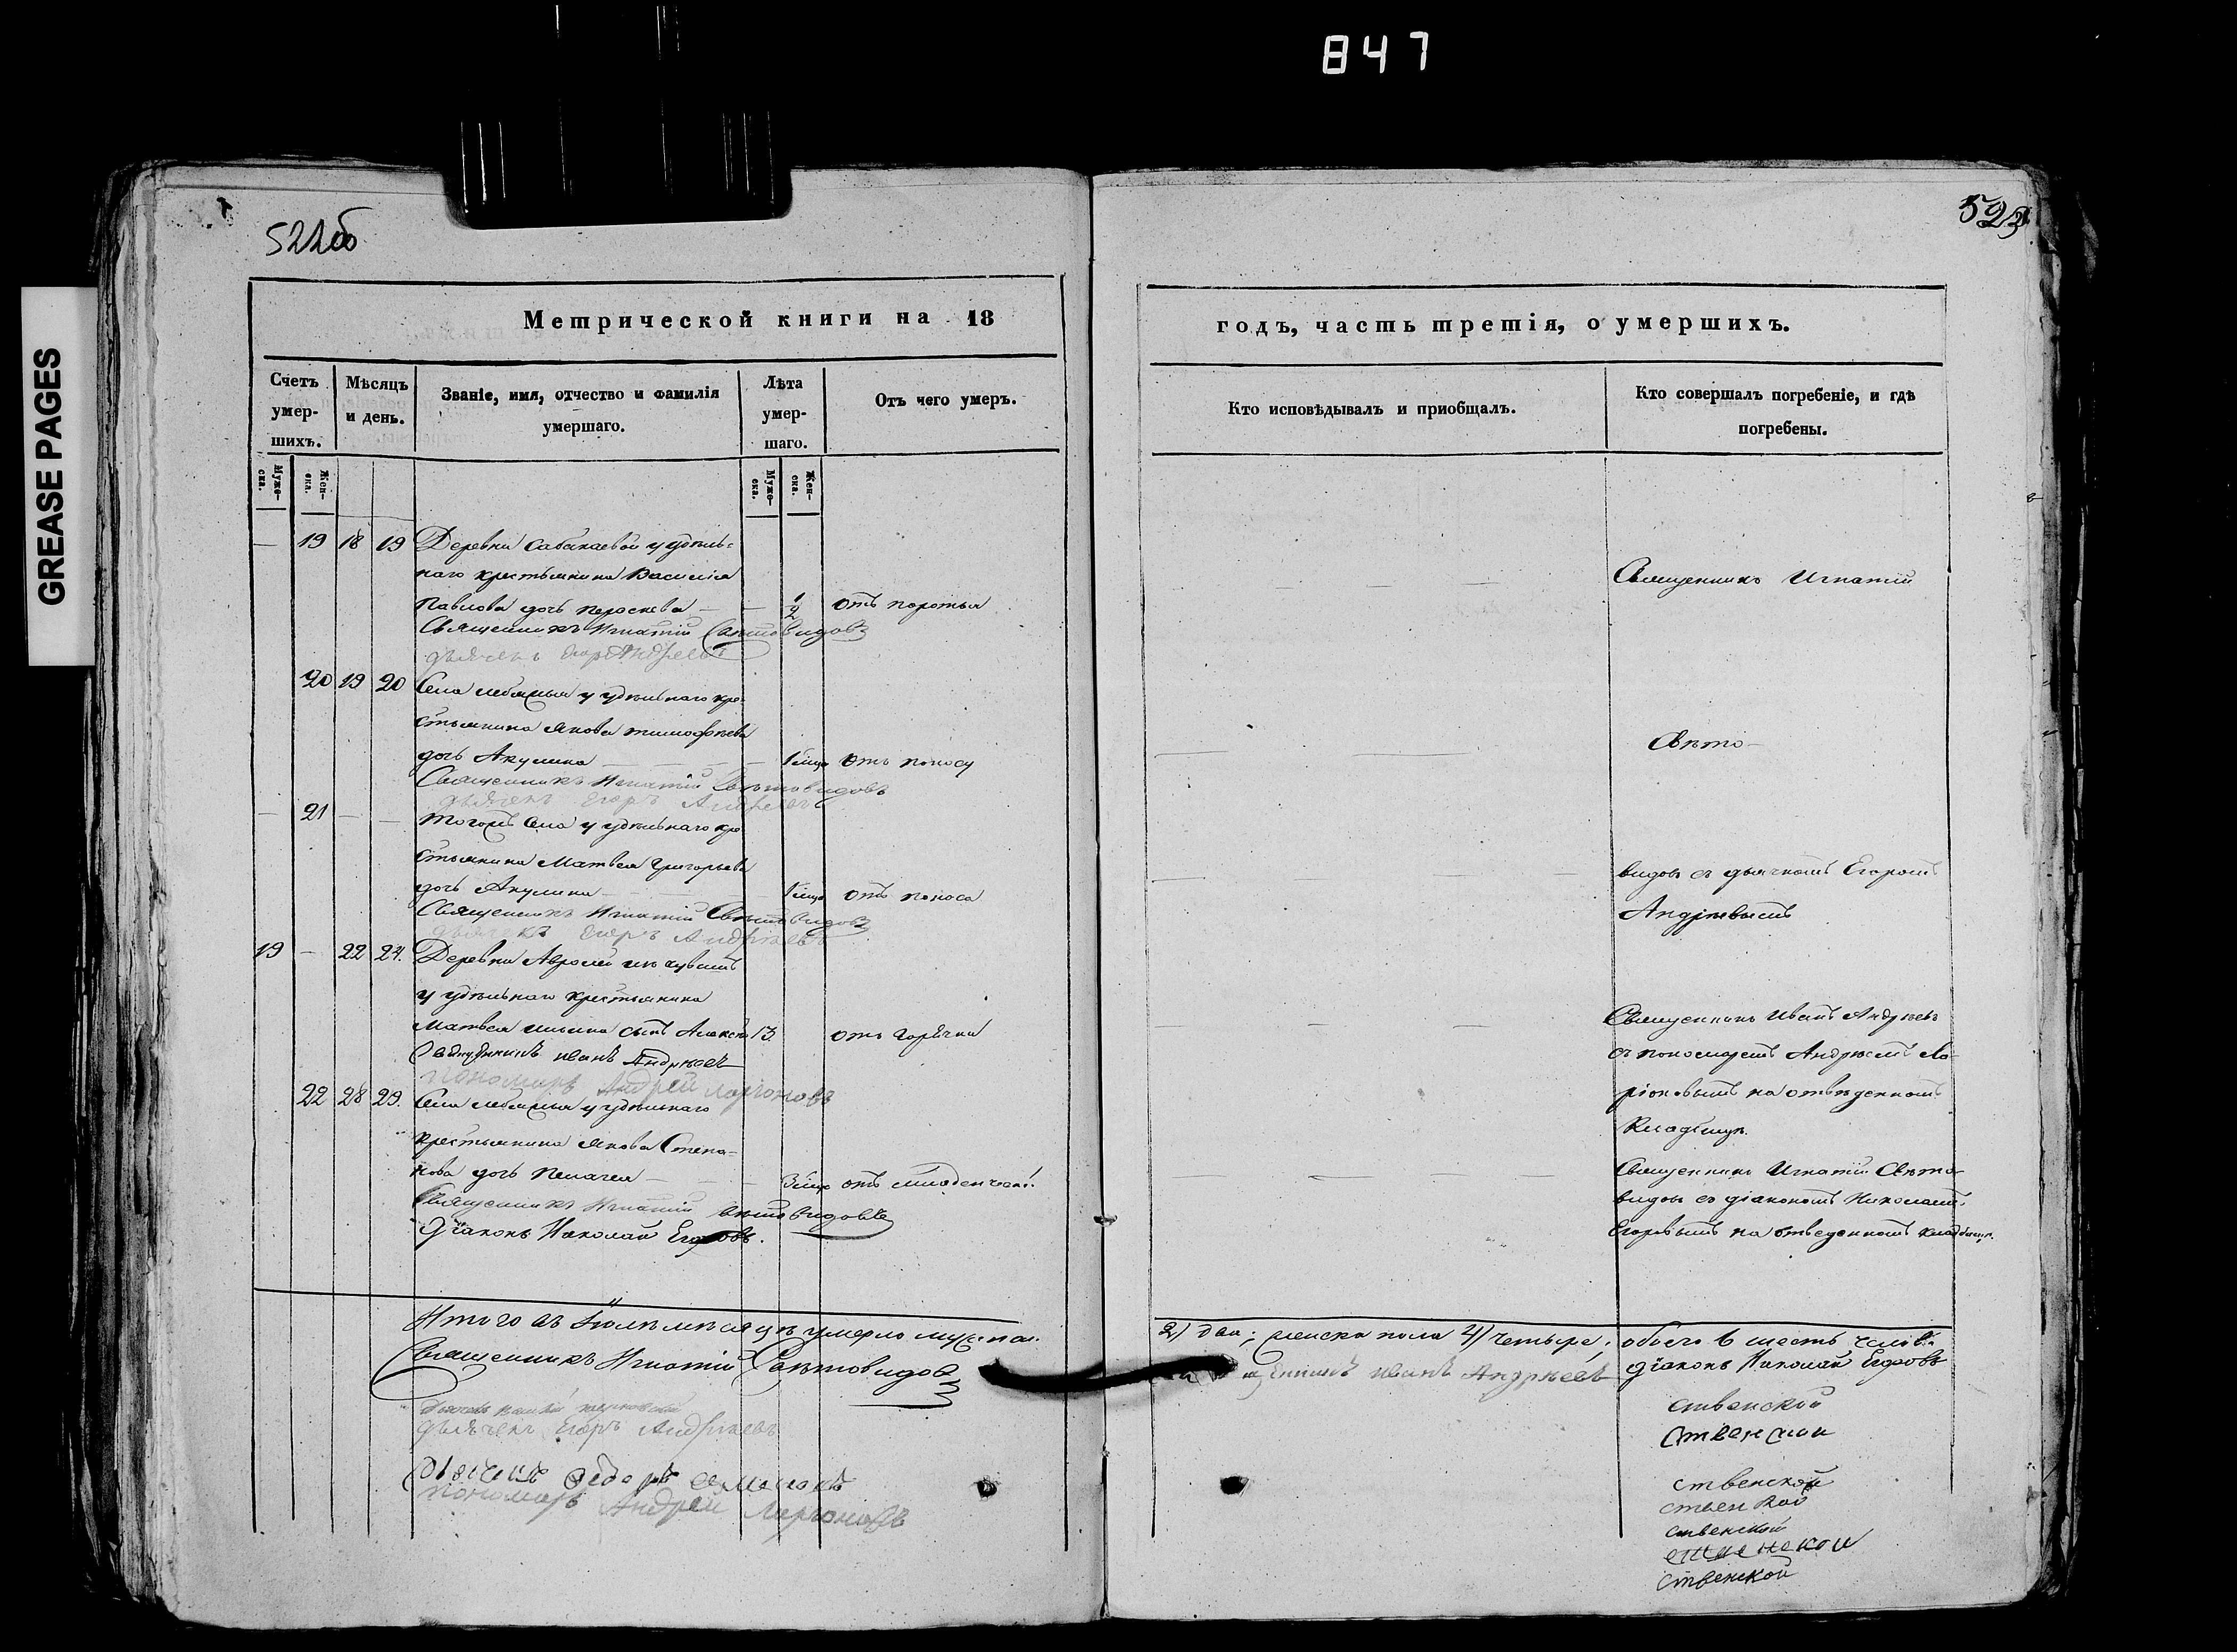 847
GREASE PAGES
522об
523
Метрической книги на 18
Счетъ умер-шихъ.
Мѣсяцъ и день.
Званіе, имя, отчество и фамилія умершаго.
Лѣта умер-шаго.
Отъ чего умеръ.
Муже-ска.
Жен-ска.
Муже-ска.
Жен-ска.
— 19 18 19 Деревни Сабакаевой у удѣль-
наго крестьянина Василія
Павлова дочь — — 1/2 отъ
Священникъ Игнатій Свѣтовидовъ
дьячекъ Егоръ Андреевъ
20 19 20 Села у удѣльнаго кре-
стьянина Якова Тимофѣева
дочь Акулина — отъ поносу
Священникъ Игнатій Свѣтовидовъ
дьячекъ Егоръ Андреевъ
— 21 — — Тогожъ села у удѣльнаго кре
стьянина Матвея Григорьева
дочь Акулина — отъ поноса
Священникъ Игнатій Свѣтовидовъ
дьячекъ Егоръ Андрѣевъ
19 — 22 24. Деревни
у удѣльнаго крестьянина
Матвея Ильина сынъ 13. отъ горячки
Священникъ Иванъ Андрѣевъ
пономарь Андрей Ларіоновъ
22 28 29. Села у удѣльнаго
крестьянина Якова Степа-
нова дочь Пелагея — отъ
Священникъ Игнатій Свѣтовидовъ
Діаконъ Николай Егоровъ.
Итого въ Іюлѣ мѣсяцѣ умерло муж: пол:
Священникъ Игнатій Свѣтовидовъ
дьячекъ Егоръ Андрѣевъ
дьячекъ
пономарь Андрей Ларіоновъ
годъ, часть третія, о умершихъ.
Кто исповѣдывалъ и пріобщалъ.
Кто совершалъ погребеніе, и гдѣ погребены.
Священникъ Игнатій
Свѣто-
видовъ съ дьячкомъ Егоромъ
Андрѣевымъ
Священникъ Иванъ Андрѣевъ
съ пономаремъ Андрѣемъ Ла-
ріоновымъ на отведенномъ
кладбищѣ.
Священникъ Игнатій Свѣто-
видовъ съ діакономъ Николаемъ
Егоровымъ на отведенномъ кладбищѣ.
2) два; женска пола 4) четыре; обоего 6 шесть челов:
Иванъ Андрѣевъ діаконъ Николай Егоровъ
ственской
ственской
ственской
ственской
ственской
ственской
ственской